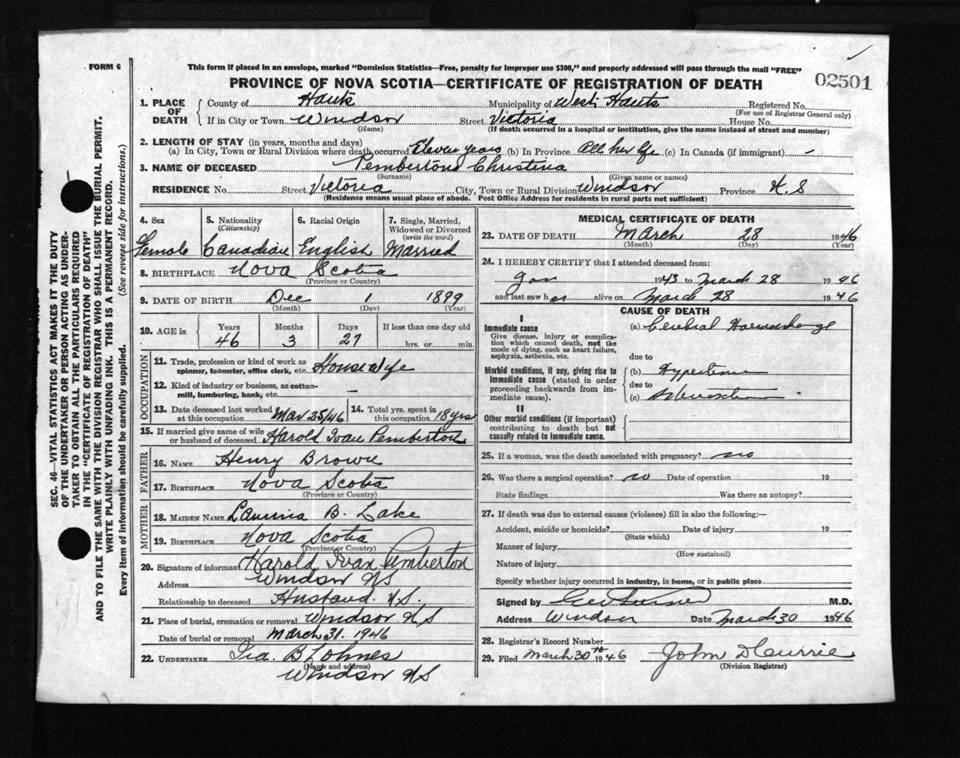 FORM 6
This form if placed in an envelope, marked "Dominion Statistics—Free, penalty for improper use $300," and properly addressed will pass through the mail "FREE"
PROVINCE OF NOVA SCOTIA—CERTIFICATE OF REGISTRATION OF DEATH
02501
SEC. 46—VITAL STATISTICS ACT MAKES IT THE DUTY
OF THE UNDERTAKER OR PERSON ACTING AS UNDER-
TAKER TO OBTAIN ALL THE PARTICULARS REQUIRED
IN THE "CERTIFICATE OF REGISTRATION OF DEATH"
AND TO FILE THE SAME WITH THE DIVISION REGISTRAR WHO SHALL ISSUE THE BURIAL PERMIT.
WRITE PLAINLY WITH UNFADING INK. THIS IS A PERMANENT RECORD.
Every item of Information should be carefully supplied. (See reverse side for instructions.)
1. PLACE OF DEATH
County of Hants Municipality of West Hants Registered No.
(For use of Registrar General only)
If in City or Town Windsor Street Victoria House No.
(Name) (If death occurred in a hospital or institution, give the name instead of street and number)
2. LENGTH OF STAY (in years, months and days)
(a) In City, Town or Rural Division where death occurred Eleven years (b) In Province All her life (c) In Canada (if immigrant) -
3. NAME OF DECEASED Pemberton Christina
(Surname) (Given name or names)
RESIDENCE No. Street Victoria City, Town or Rural Division Windsor Province N.S
(Residence means usual place of abode. Post Office Address for residents in rural parts not sufficient)
4. Sex 5. Nationality 6. Racial Origin 7. Single, Married,
(Citizenship) Widowed or Divorced
(write the word)
Female Canadian English Married
8. BIRTHPLACE Nova Scotia
(Province or Country)
9. DATE OF BIRTH Dec 1 1899
(Month) (Day) (Year)
10. AGE in Years Months Days If less than one day old
46 3 27 hrs. or min.
OCCUPATION
11. Trade, profession or kind of work as
spinner, teamster, office clerk, etc. Housewife
12. Kind of industry or business, as cotton-
mill, lumbering, bank, etc. -
13. Date deceased last worked at this occupation Mar 28/46
14. Total yrs. spent in this occupation 18 yrs
15. If married give name of wife
or husband of deceased Harold Ivan Pemberton
FATHER
16. NAME Henry Brown
17. BIRTHPLACE Nova Scotia
(Province or Country)
MOTHER
18. MAIDEN NAME B. Lake
19. BIRTHPLACE Nova Scotia
(Province or Country)
20. Signature of informant Harold Ivan Pemberton
Address Windsor NS
Relationship to deceased Husband. N.S.
21. Place of burial, cremation or removal Windsor NS
Date of burial or removal March 31. 1946
22. UNDERTAKER Ira. B Lohnes
(Name and address)
Windsor NS
MEDICAL CERTIFICATE OF DEATH
23. DATE OF DEATH March 28 1946
(Month) (Day) (Year)
24. I HEREBY CERTIFY that I attended deceased from:
Jan 1943 to March 28 1946
and last saw her alive on March 28 1946
CAUSE OF DEATH
I
Immediate cause
Give disease, injury or complica-
tion which caused death, not the
mode of dying, such as heart failure,
asphyxia, asthenia, etc.
(a) Cerebral Haemorrhage
due to
Morbid conditions, if any, giving rise to
immediate cause (stated in order
proceeding backwards from im-
mediate cause).
(b) Hypertension
due to
(c)
II
Other morbid conditions (if important)
contributing to death but not
causally related to immediate cause.
25. If a woman, was the death associated with pregnancy? no
26. Was there a surgical operation? no Date of operation 19
State findings Was there an autopsy?
27. If death was due to external causes (violence) fill in also the following:—
Accident, suicide or homicide? Date of injury 19
(State which)
Manner of injury
(How sustained)
Nature of injury
Specify whether injury occurred in industry, in home, or in public place
Signed by M.D.
Address Windsor Date March 30 1946
28. Registrar's Record Number
29. Filed March 30th 1946 John D Currie
(Division Registrar)